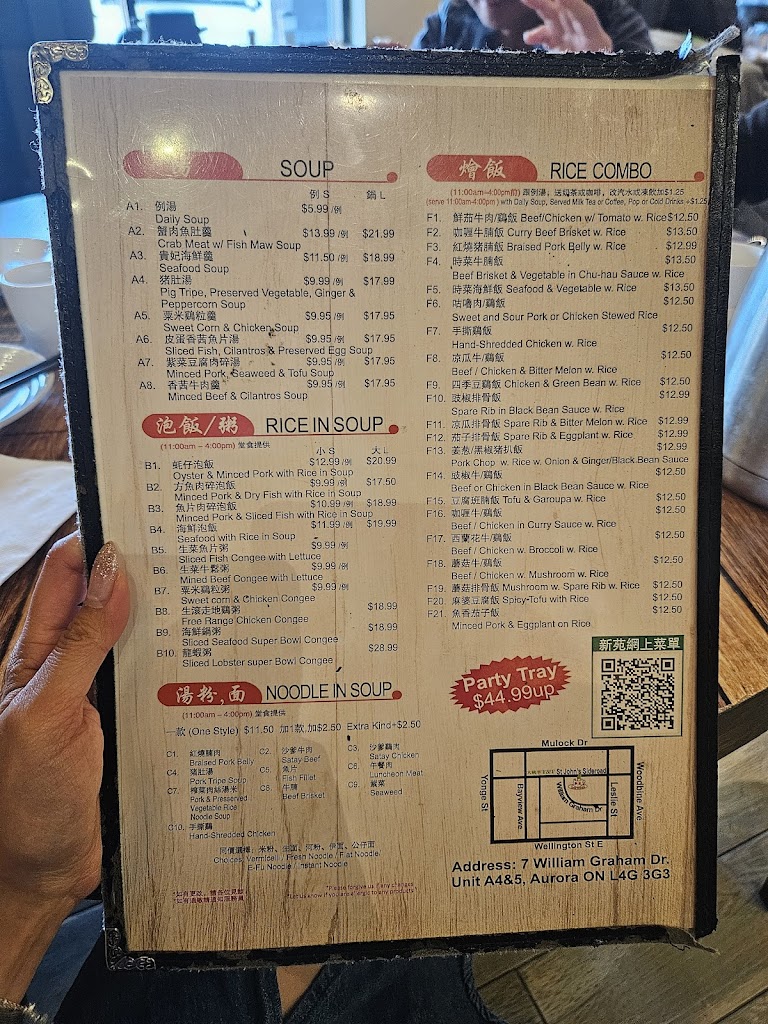 SOUP
例 S 鍋 L
A1. 例湯 $5.99 /例
Daily Soup
A2. 蟹肉魚肚羹 $13.99 /例 $21.99
Crab Meat w/ Fish Maw Soup
A3. 貴妃海鮮羹 $11.50 /例 $18.99
Seafood Soup
A4. 猪肚湯 $9.99 /例 $17.99
Pig Tripe, Preserved Vegetable, Ginger &
Peppercorn Soup
A5. 粟米鷄粒羹 $9.95 /例 $17.95
Sweet Corn & Chicken Soup
A6. 皮蛋香茜魚片湯 $9.95 /例 $17.95
Sliced Fish, Cilantros & Preserved Egg Soup
A7. 紫菜豆腐肉碎湯 $9.95 /例 $17.95
Minced Pork, Seaweed & Tofu Soup
A8. 香茜牛肉羹 $9.95 /例 $17.95
Minced Beef & Cilantros Soup
泡飯/粥 RICE IN SOUP
(11:00am – 4:00pm) 堂食提供
小 S 大 L
B1. 蚝仔泡飯 $12.99 /例 $20.99
Oyster & Minced Pork with Rice in Soup
B2. 方魚肉碎泡飯 $9.99 /例 $17.50
Minced Pork & Dry Fish with Rice in Soup
B3. 魚片肉碎泡飯 $10.99 /例 $18.99
Minced Pork & Sliced Fish with Rice in Soup
B4. 海鮮泡飯 $11.99 /例 $19.99
Seafood with Rice in Soup
B5. 生菜魚片粥 $9.99 /例
Sliced Fish Congee with Lettuce
B6. 生菜牛鬆粥 $9.99 /例
Mined Beef Congee with Lettuce
B7. 粟米鷄粒粥 $9.99 /例
Sweet corn & Chicken Congee
B8. 生滾走地鷄粥 $18.99
Free Range Chicken Congee
B9. 海鮮鍋粥 $18.99
Sliced Seafood Super Bowl Congee
B10. 龍蝦粥 $28.99
Sliced Lobster super Bowl Congee
湯粉,面 NOODLE IN SOUP
(11:00am – 4:00pm) 堂食提供
一款 (One Style) $11.50 加1款,加$2.50 Extra Kind+$2.50
C1. 紅燒腩肉 C2. 沙爹牛肉 C3. 沙爹鷄肉
Braised Pork Belly Satay Beef Satay Chicken
C4. 猪肚湯 C5. 魚片 C6. 午餐肉
Pork Tripe Soup Fish Fillet Luncheon Meat
C7. 榨菜肉絲湯米 C8. 牛腩 C9. 紫菜
Pork & Preserved Beef Brisket Seaweed
Vegetable Rice
Noodle Soup
C10. 手撕鷄
Hand-Shredded Chicken
同價選擇: 米粉、生面、河粉、伊面、公仔面
Choices: Vermicelli / Fresh Noodle / Flat Noodle/
E-Fu Noodle / Instant Noodle
*Please forgive us if any changes
*Let us know if you are allergic to any products*
燴飯 RICE COMBO
(11:00am–4:00pm前) 跟例湯, 送熱茶或咖啡, 改汽水或凍飲加$1.25
(serve 11:00am-4:00pm) with Daily Soup, Served Milk Tea or Coffee, Pop or Cold Drinks +$1.25
F1. 鮮茄牛肉/鷄飯 Beef/Chicken w/ Tomato w. Rice $12.50
F2. 咖喱牛腩飯 Curry Beef Brisket w. Rice $13.50
F3. 紅燒猪腩飯 Braised Pork Belly w. Rice $12.99
F4. 時菜牛腩飯 $13.50
Beef Brisket & Vegetable in Chu-hau Sauce w. Rice
F5. 時菜海鮮飯 Seafood & Vegetable w. Rice $13.50
F6. 咕嚕肉/鷄飯 $12.50
Sweet and Sour Pork or Chicken Stewed Rice
F7. 手撕鷄飯 $12.50
Hand-Shredded Chicken w. Rice
F8. 凉瓜牛/鷄飯 $12.50
Beef / Chicken & Bitter Melon w. Rice
F9. 四季豆鷄飯 Chicken & Green Bean w. Rice $12.50
F10. 豉椒排骨飯 $12.50
Spare Rib in Black Bean Sauce w. Rice
F11. 凉瓜排骨飯 Spare Rib & Bitter Melon w. Rice $12.99
F12. 茄子排骨飯 Spare Rib & Eggplant w. Rice $12.99
F13. 姜葱/黑椒猪扒飯 $12.99
Pork Chop w. Rice w. Onion & Ginger/Black Bean Sauce
F14. 豉椒牛/鷄飯 $12.50
Beef or Chicken in Black Bean Sauce w. Rice
F15. 豆腐班腩飯 Tofu & Garoupa w. Rice $12.50
F16. 咖喱牛/鷄飯 $12.50
Beef / Chicken in Curry Sauce w. Rice
F17. 西蘭花牛/鷄飯 $12.50
Beef / Chicken w. Broccoli w. Rice
F18. 蘑菇牛/鷄飯 $12.50
Beef / Chicken w. Mushroom w. Rice
F19. 蘑菇排骨飯 Mushroom w. Spare Rib w. Rice $12.50
F20. 麻婆豆腐飯 Spicy-Tofu with Rice $12.50
F21. 魚香茄子飯 $12.50
Minced Pork & Eggplant on Rice
新苑網上菜單
Party Tray
$44.99up
Mulock Dr
St John's Sideroad
Yonge St
Bayview Ave
William Graham Dr.
Leslie St
Woodbine Ave
Wellington St E
Address: 7 William Graham Dr.
Unit A4&5, Aurora ON L4G 3G3